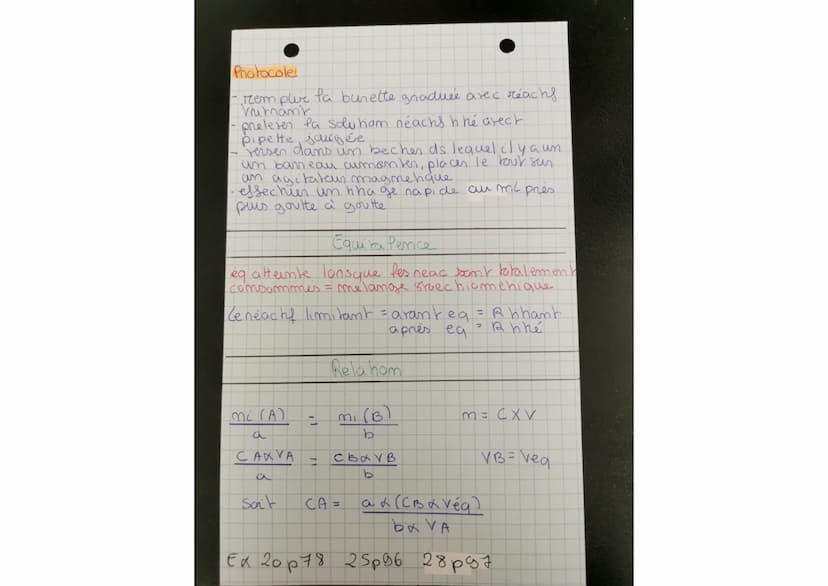 Protocole
- remplir la burette graduée avec réactif
titrant
- prélever la solution réactif titré avec
pipette jaugée
- verser dans un becher ds lequel il y a un
un barreau aimanter, placer le tout sur
un agitateur magnetique
- effectuer un titrage rapide au mL près
puis goutte à goutte
Equivalence
éq atteinte lorsque les reac sont totalement
consommés = mélange stoechiométrique
le réactif limitant = avant eq = R titrant
après eq = R titré
Relation
ni (A) / a = ni (B) / b n = C x V
CA x VA / a = CB x VB / b VB = Veq
Soit CA = a x (CB x Véq) / b x VA
Ex 20 p78 25p96 28p97